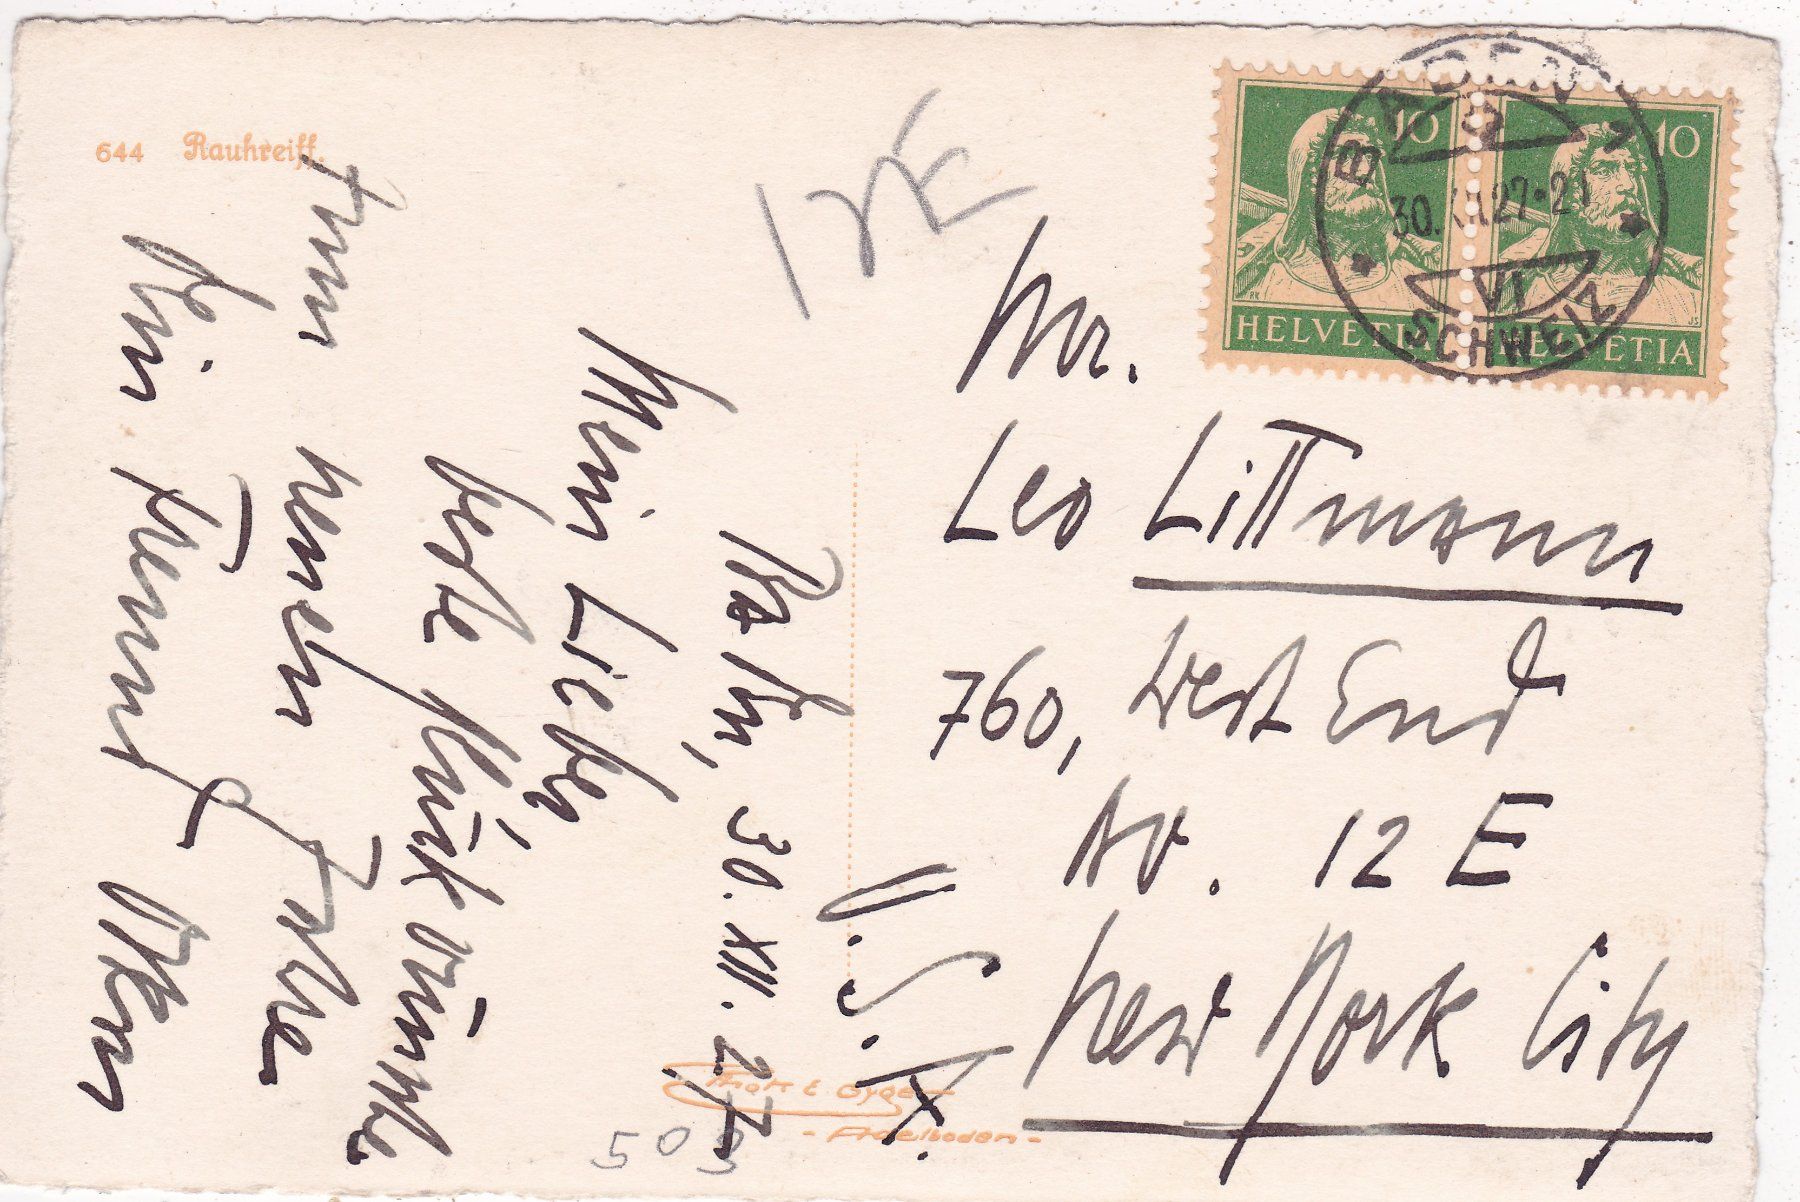 644 Rauhreiff.
12E
10
HELVETIA
10
HELVETIA
BADEN 1
30. XII 27-21
VI
SCHWEIZ
Mr.
Leo Littmann
760, West End
Av. 12 E
New York City
U. S. A.
Baden, 30. XII. 27
Mein Lieber,
beste Glückwünsche
zum neuen Jahre
Dein Freund Oskar
Phot. E. Gyger
- Adelboden -
503